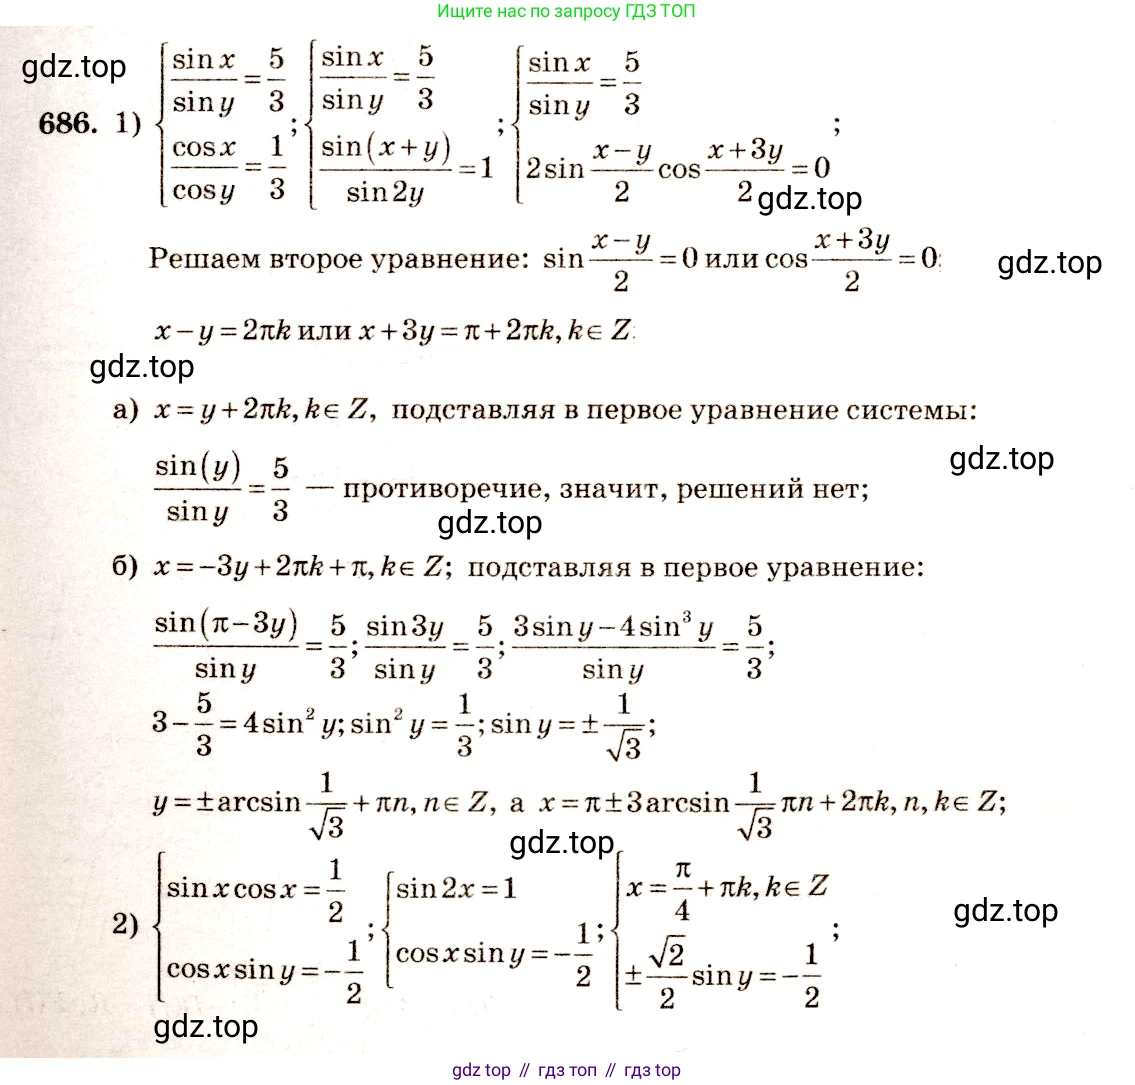 Ищите нас по запросу ГДЗ ТОП
gdz.top
686. 1) { sin x / sin y = 5/3 ; cos x / cos y = 1/3 ; { sin x / sin y = 5/3 ; sin(x+y) / sin 2y = 1 ; { sin x / sin y = 5/3 ; 2 sin (x−y)/2 cos (x+3y)/2 = 0 ;
gdz.top
Решаем второе уравнение: sin (x−y)/2 = 0 или cos (x+3y)/2 = 0;
gdz.top
x − y = 2πk или x + 3y = π + 2πk, k ∈ Z.
gdz.top
а) x = y + 2πk, k ∈ Z, подставляя в первое уравнение системы:
gdz.top
sin(y) / sin y = 5/3 — противоречие, значит, решений нет;
gdz.top
б) x = −3y + 2πk + π, k ∈ Z; подставляя в первое уравнение:
sin(π−3y) / sin y = 5/3; sin 3y / sin y = 5/3; (3 sin y − 4 sin³ y) / sin y = 5/3;
3 − 5/3 = 4 sin² y; sin² y = 1/3; sin y = ± 1/√3;
y = ± arcsin 1/√3 + πn, n ∈ Z, а x = π ± 3 arcsin 1/√3 πn + 2πk, n, k ∈ Z;
gdz.top
2) { sin x cos x = 1/2 ; cos x sin y = −1/2 ; { sin 2x = 1 ; cos x sin y = −1/2 ; { x = π/4 + πk, k ∈ Z ; ± √2/2 sin y = −1/2 ;
gdz.top
gdz.top
gdz top // гдз топ // гдз top